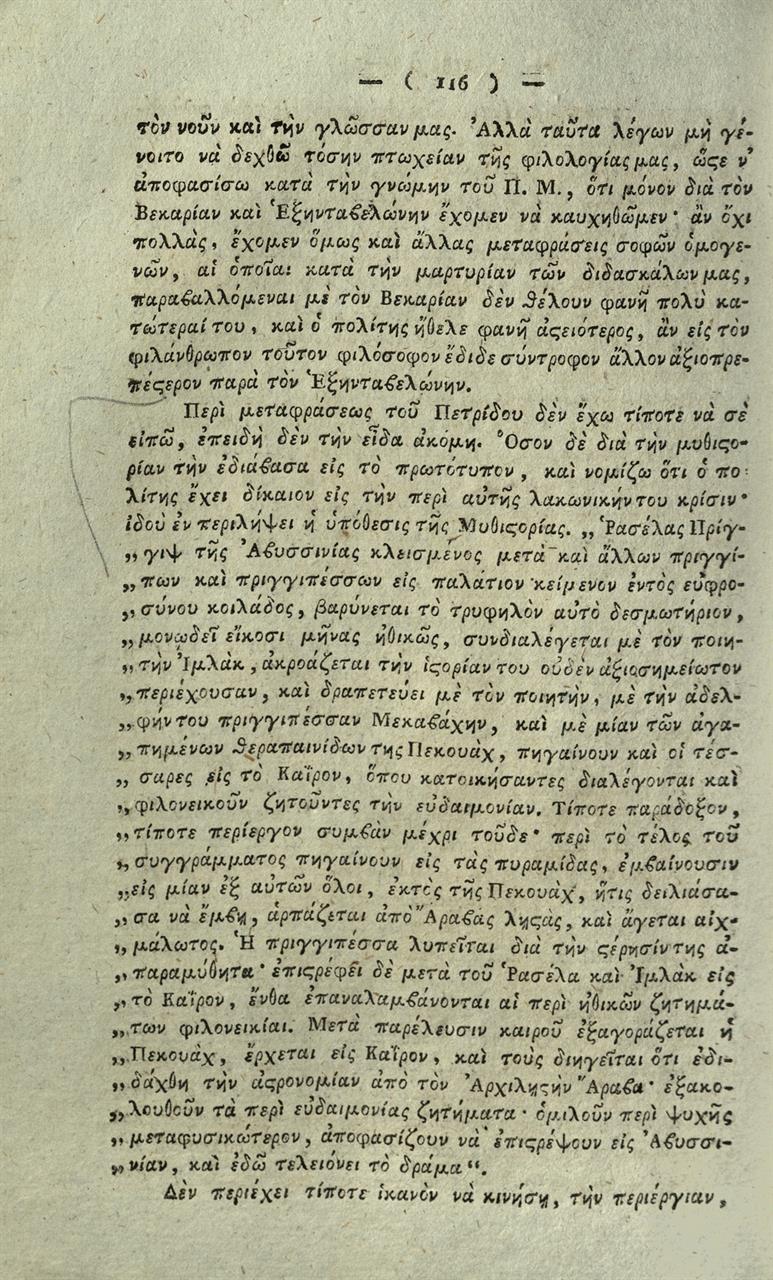 — ( 116 ) —
τὸν νοῦν καὶ τὴν γλῶσσαν μας. Ἀλλὰ ταῦτα λέγων μὴ γέ-
νοιτο νὰ δεχθῶ τόσην πτωχείαν τῆς φιλολογίας μας, ὥϛε ν'
ἀποφασίσω κατὰ τὴν γνώμην τοῦ Π. Μ., ὅτι μόνον διὰ τὸν
Βεκαρίαν καὶ Ἑξηνταϐελώνην ἔχομεν νὰ καυχηθῶμεν· ἂν ὄχι
πολλὰς, ἔχομεν ὅμως καὶ ἄλλας μεταφράσεις σοφῶν ὁμογε-
νῶν, αἱ ὁποῖαι κατὰ τὴν μαρτυρίαν τῶν διδασκάλων μας,
παραϐαλλόμεναι μὲ τὸν Βεκαρίαν δὲν θέλουν φανῆ πολὺ κα-
τώτεραί του, καὶ ὁ πολίτης ἤθελε φανῆ ἀϛειότερος, ἂν εἰς τὸν
φιλάνθρωπον τοῦτον φιλόσοφον ἔδιδε σύντροφον ἄλλον ἀξιοπρε-
πέϛερον παρὰ τὸν Ἑξηνταϐελώνην.
Περὶ μεταφράσεως τοῦ Πετρίδου δὲν ἔχω τίποτε νὰ σὲ
εἰπῶ, ἐπειδὴ δὲν τὴν εἶδα ἀκόμη. Ὅσον δὲ διὰ τὴν μυθιϛο-
ρίαν τὴν ἐδιάϐασα εἰς τὸ πρωτότυπον, καὶ νομίζω ὅτι ὁ πο-
λίτης ἔχει δίκαιον εἰς τὴν περὶ αὐτῆς λακωνικήν του κρίσιν·
ἰδοὺ ἐν περιλήψει ἡ ὑπόθεσις τῆς Μυθιϛορίας. „ Ῥασέλας Πρίγ-
„ γιψ τῆς Ἀϐυσσινίας κλεισμένος μετὰ καὶ ἄλλων πριγγί-
„ πων καὶ πριγγιπέσσων εἰς παλάτιον κείμενον ἐντὸς εὐφρο-
„ σύνου κοιλάδος, βαρύνεται τὸ τρυφηλὸν αὐτὸ δεσμωτήριον,
„ μονωδεῖ εἴκοσι μῆνας ἠθικῶς, συνδιαλέγεται μὲ τὸν ποιη-
„ τὴν Ἰμλὰκ, ἀκροάζεται τὴν ἱϛορίαν του οὐδὲν ἀξιοσημείωτον
„ περιέχουσαν, καὶ δραπετεύει μὲ τὸν ποιητὴν, μὲ τὴν ἀδελ-
„ φήν του πριγγιπέσσαν Μεκαϐάχην, καὶ μὲ μίαν τῶν ἀγα-
„ πημένων θεραπαινίδων της Πεκουὰχ, πηγαίνουν καὶ οἱ τέσ-
„ σαρες εἰς τὸ Καΐρον, ὅπου κατοικήσαντες διαλέγονται καὶ
„ φιλονεικοῦν ζητοῦντες τὴν εὐδαιμονίαν. Τίποτε παράδοξον,
„ τίποτε περίεργον συμϐὰν μέχρι τοῦδε· περὶ τὸ τέλος τοῦ
„ συγγράμματος πηγαίνουν εἰς τὰς πυραμίδας, ἐμϐαίνουσιν
„ εἰς μίαν ἐξ αὐτῶν ὅλοι, ἐκτὸς τῆς Πεκουὰχ, ἥτις δειλιάσα-
„ σα νὰ ἔμϐῃ, ἁρπάζεται ἀπὸ Ἄραϐας λῃϛὰς, καὶ ἄγεται αἰχ-
„ μάλωτος. Ἡ πριγγιπέσσα λυπεῖται διὰ τὴν ϛέρησίν της ἀ-
„ παραμύθητα· ἐπιϛρέφει δὲ μετὰ τοῦ Ῥασέλα καὶ Ἰμλὰκ εἰς
„ τὸ Καΐρον, ἔνθα ἐπαναλαμϐάνονται αἱ περὶ ἠθικῶν ζητημά-
„ των φιλονεικίαι. Μετὰ παρέλευσιν καιροῦ ἐξαγοράζεται ἡ
„ Πεκουὰχ, ἔρχεται εἰς Καΐρον, καὶ τοὺς διηγεῖται ὅτι ἐδι-
„ δάχθη τὴν ἀϛρονομίαν ἀπὸ τὸν Ἀρχιληϛὴν Ἄραϐα· ἐξακο-
„ λουθοῦν τὰ περὶ εὐδαιμονίας ζητήματα· ὁμιλοῦν περὶ ψυχῆς
„ μεταφυσικώτερον, ἀποφασίζουν νὰ ἐπιϛρέψουν εἰς Ἀϐυσσι-
„ νίαν, καὶ ἐδῶ τελειόνει τὸ δράμα“.
Δὲν περιέχει τίποτε ἱκανὸν νὰ κινήσῃ, τὴν περιέργιαν,